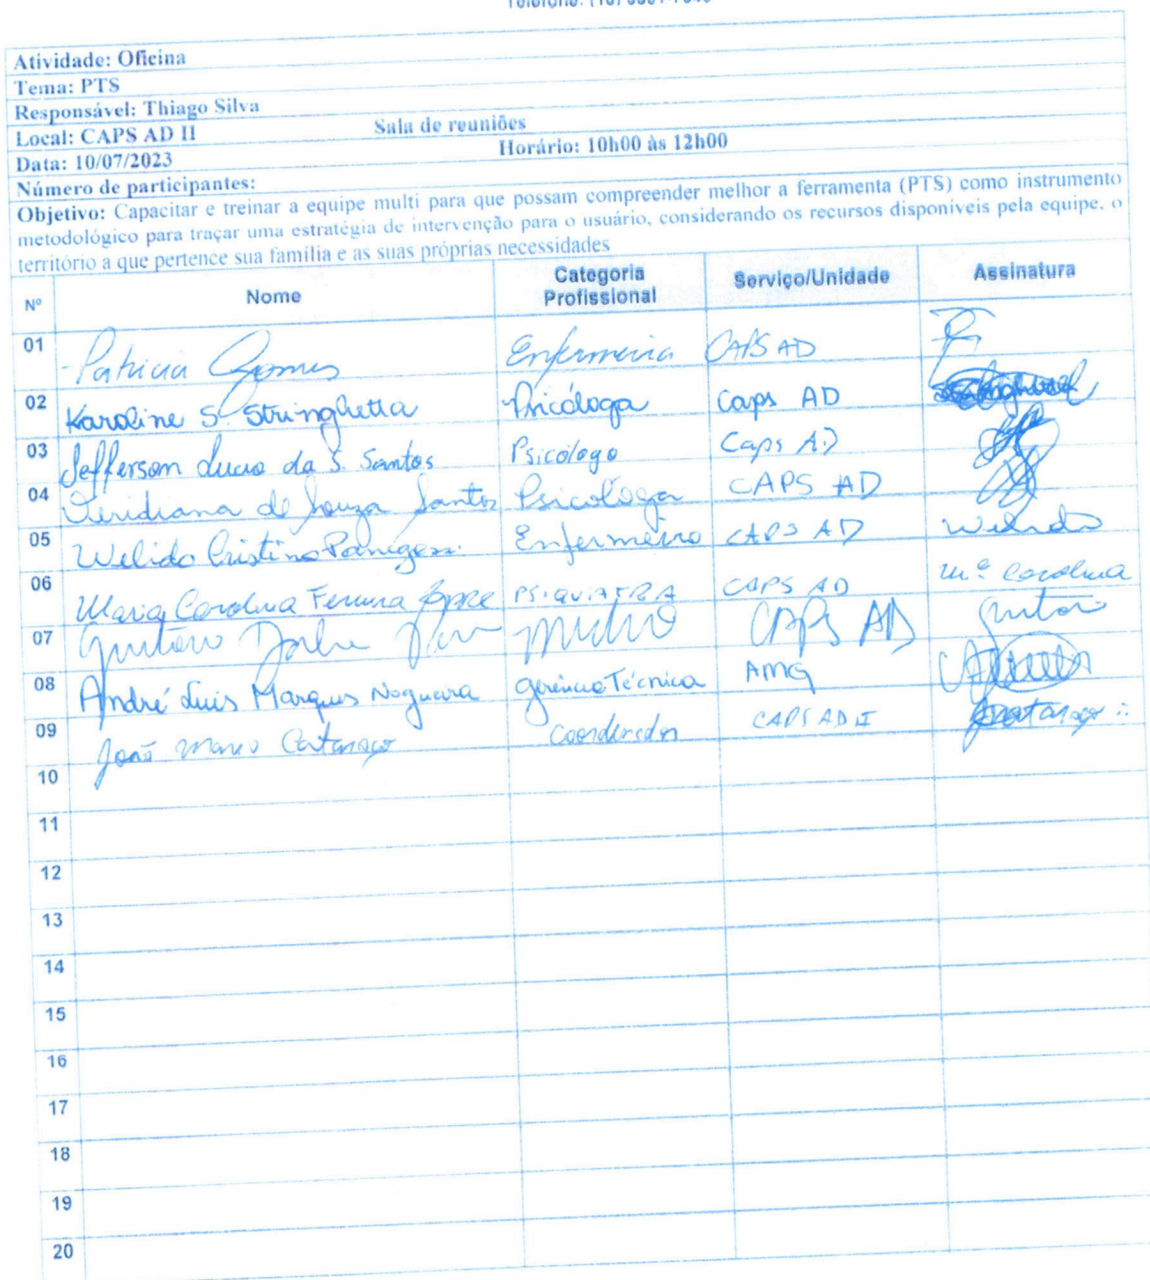 Atividade: Oficina
Tema: PTS
Responsável: Thiago Silva
Local: CAPS AD II Sala de reuniões
Data: 10/07/2023 Horário: 10h00 às 12h00
Número de participantes:
Objetivo: Capacitar e treinar a equipe multi para que possam compreender melhor a ferramenta (PTS) como instrumento
metodológico para traçar uma estratégia de intervenção para o usuário, considerando os recursos disponíveis pela equipe, o
território a que pertence sua família e as suas próprias necessidades
Nº Nome Categoria Profissional Serviço/Unidade Assinatura
01 Patricia Gomes Enfermeira CAPS AD
02 Karoline S. Stringhetta Psicóloga Caps AD
03 Jefferson Lucio da S. Santos Psicólogo Caps AD
04 Viridiana de Souza Santos Psicóloga CAPS AD
05 Welido Cristino Enfermeiro CAPS AD Welido
06 Maria Carolina Ferreira PSIQUIATRA CAPS AD Mª Carolina
07 Gustavo CAPS AD
08 André Luis Marques Nogueira Gerência Técnica AMG
09 João Coordenador CAPS AD II
10
11
12
13
14
15
16
17
18
19
20